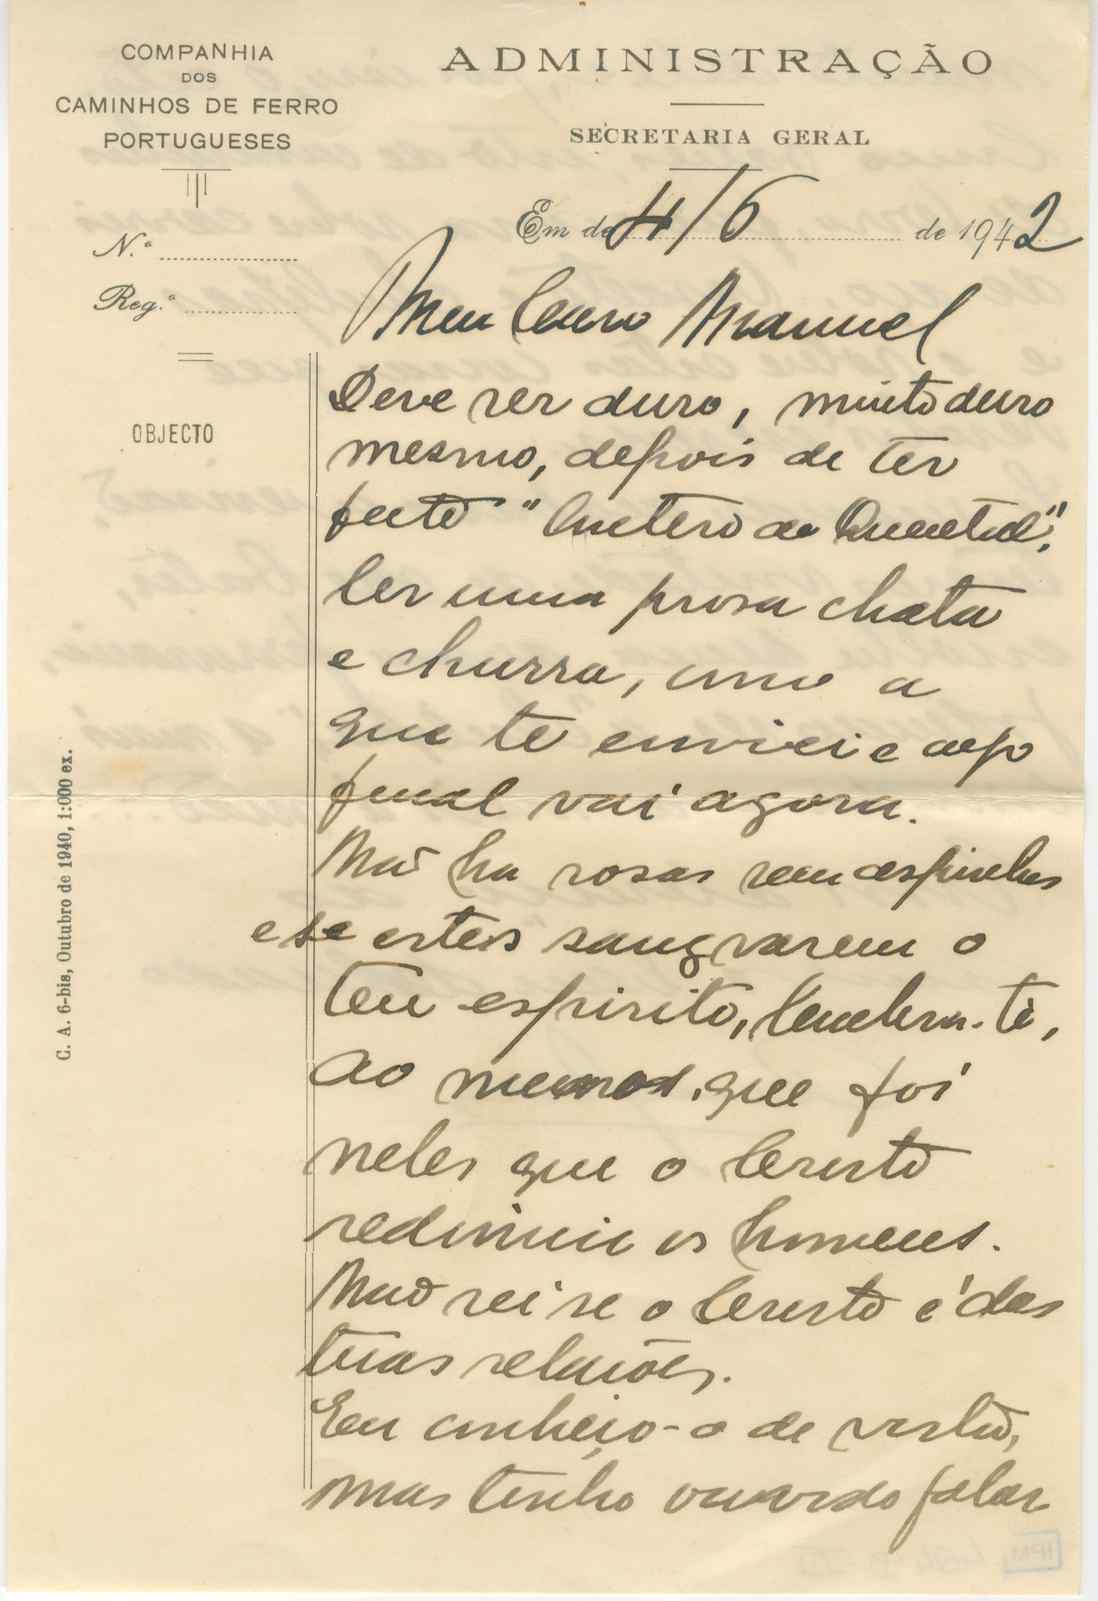 COMPANHIA
DOS
CAMINHOS DE FERRO
PORTUGUESES
ADMINISTRAÇÃO
SECRETARIA GERAL
N.º
Reg.º
Em de 4/6 de 1942
OBJECTO
Meu Caro Manuel
Deve ser duro, muito duro
mesmo, depois de ter
feito "Antero de Quental",
ler uma prosa chata
e churra, como a
que te enviei e cujo
final vai agora.
Não ha rosas sem espinhos
e se estes sangrarem o
teu espirito, lembra-te,
ao menos, que foi
neles que o Cristo
redimiu os homens.
Não sei se o Cristo é das
tuas relações.
Eu conheço-o de vista,
mas tenho ouvido falar
C. A. 6-bis, Outubro de 1940, 1:000 ex.